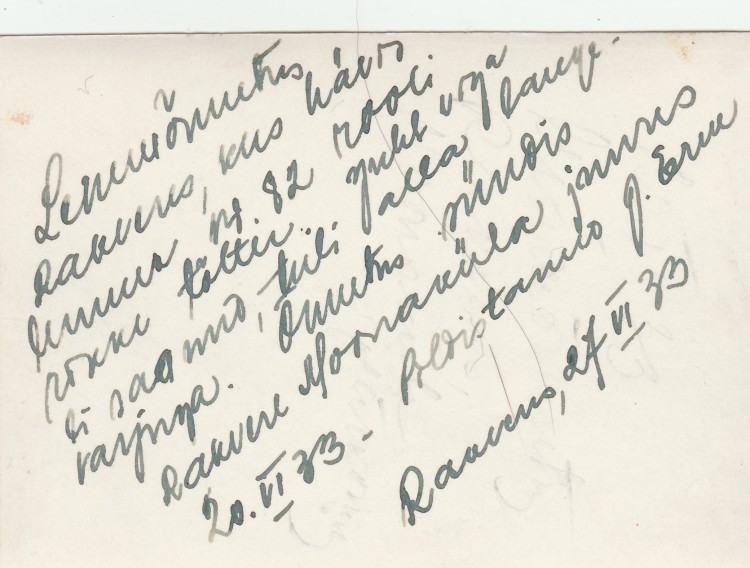 Lennuõnnetus
Rakveres, kus hävis
lennuk nr. 82 rooli
rikke tõttu. Juht viga
ei saanud, tuli alla lange-
varjuga. Õnnetus sündis
Rakvere Moonaküla juures
20. VI 33. Pildistanud J. Erm
Rakveres, 27 VI 33